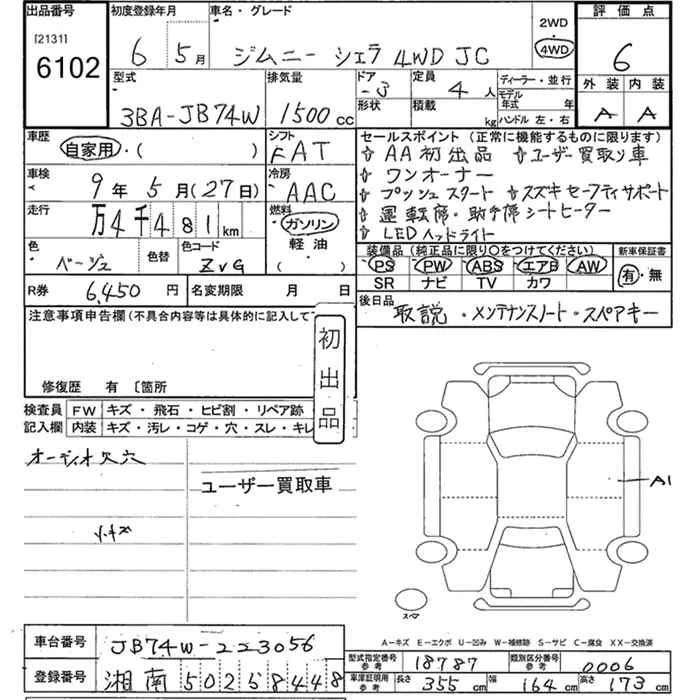 出品番号
[2131]
6102
初度登録年月
6 5月
車名・グレード
ジムニー シエラ 4WD JC
2WD
4WD
評価点
6
外装 内装
A A
型式
3BA-JB74W
排気量
1500 cc
ドア
-3
形状
定員
4人
積載 kg
ディーラー・並行
モデル年式 年式
ハンドル 左・右
車歴
自家用・( )
シフト
FAT
車検
9年 5月(27日)
冷房
AAC
走行
万4千481km
燃料
ガソリン
軽油
( )
色
ベージュ
色替
色コード
ZVG
R券 6,450円
名変期限 月 日
セールスポイント(正常に機能するものに限ります)
AA初出品 ユーザー買取り車
ワンオーナー
プッシュスタート スズキセーフティサポート
運転席・助手席シートヒーター
LEDヘッドライト
装備品(純正品に限り〇をつけてください)
PS PW ABS エアB AW
SR ナビ TV カワ
新車保証書
有・無
後日品
取説・メンテナンスノート・スペアキー
注意事項申告欄(不具合内容等は具体的に記入して
修復歴 有 〔箇所
初出品
検査員 FW キズ・飛石・ヒビ割・リペア跡
記入欄 内装 キズ・汚レ・コゲ・穴・スレ・キレ
オーディオ欠穴
ユーザー買取車
小キズ
A1
スペア
A-キズ E-エクボ U-凹み W-補修跡 S-サビ C-腐食 XX-交換済
車台番号 JB74W-223056
登録番号 湘南 502 58448
型式指定番号 参考 18787
類別区分番号 参考 0006
車庫証明用 参考 長さ 355cm 幅 164cm 高さ 173cm